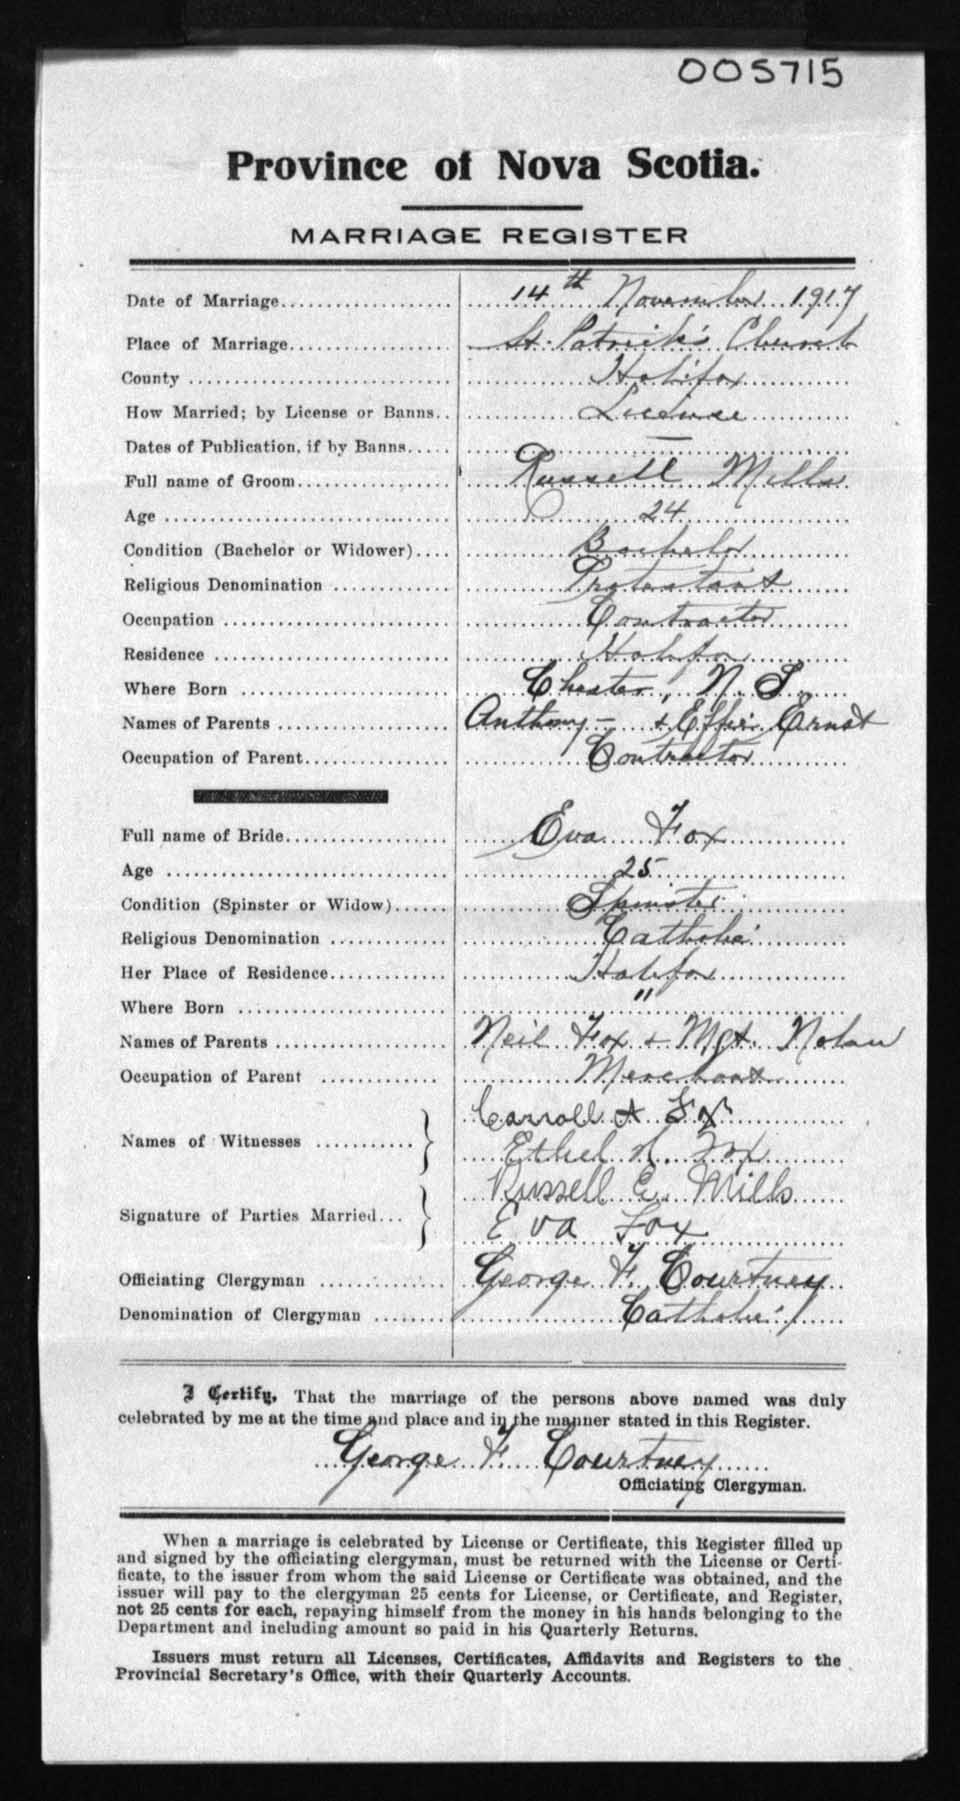 005715
Province of Nova Scotia.
MARRIAGE REGISTER
Date of Marriage 14th November 1917
Place of Marriage St. Patrick's Church
County Halifax
How Married; by License or Banns License
Dates of Publication, if by Banns —
Full name of Groom Russell Mills
Age 24
Condition (Bachelor or Widower) Bachelor
Religious Denomination Protestant
Occupation Contractor
Residence Halifax
Where Born Chester, N. S.
Names of Parents Anthony – & Effie Ernst
Occupation of Parent Contractor
Full name of Bride Eva Fox
Age 25
Condition (Spinster or Widow) Spinster
Religious Denomination Catholic
Her Place of Residence Halifax
Where Born "
Names of Parents Neil Fox + Mgt. Nolan
Occupation of Parent Merchant
Names of Witnesses } Carroll A Fox
Ethel M. Fox
Signature of Parties Married } Russell E. Mills
Eva Fox
Officiating Clergyman George F. Courtney
Denomination of Clergyman Catholic
I Certify, That the marriage of the persons above named was duly
celebrated by me at the time and place and in the manner stated in this Register.
George F. Courtney
Officiating Clergyman.
When a marriage is celebrated by License or Certificate, this Register filled up
and signed by the officiating clergyman, must be returned with the License or Certi-
ficate, to the issuer from whom the said License or Certificate was obtained, and the
issuer will pay to the clergyman 25 cents for License, or Certificate, and Register,
not 25 cents for each, repaying himself from the money in his hands belonging to the
Department and including amount so paid in his Quarterly Returns.
Issuers must return all Licenses, Certificates, Affidavits and Registers to the
Provincial Secretary's Office, with their Quarterly Accounts.